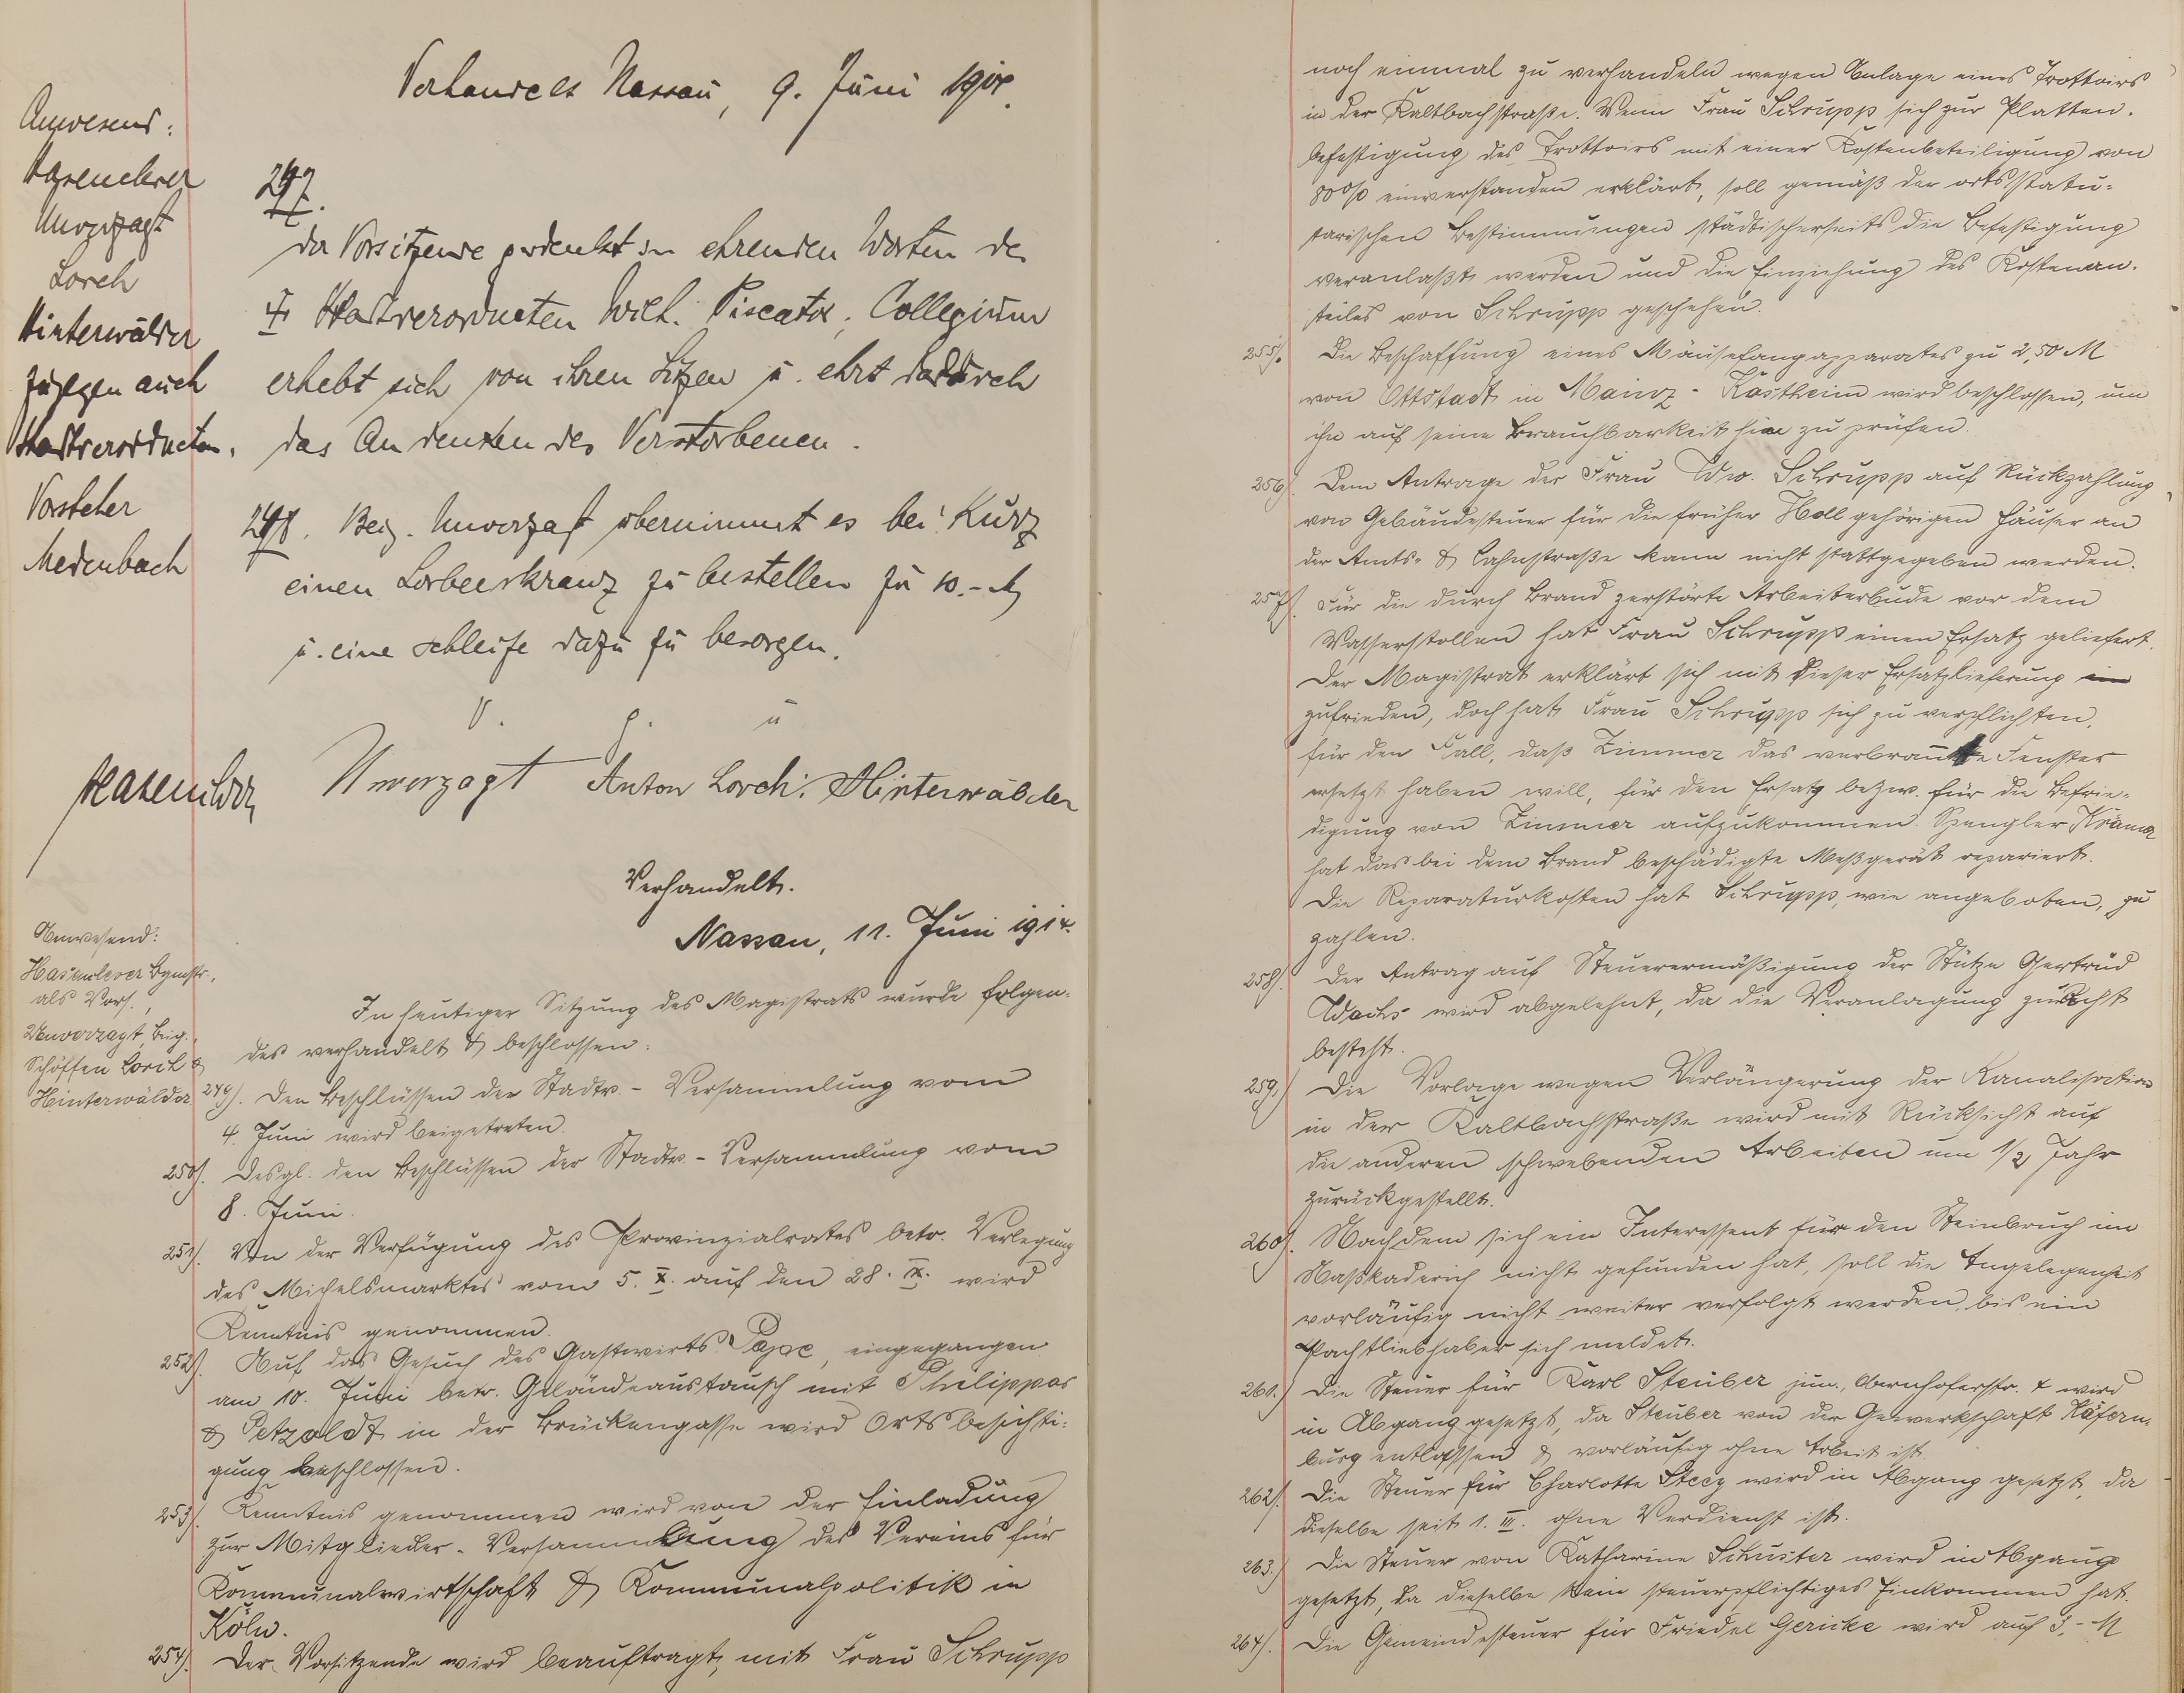 Verhandelt Nassau, 9. Juni 1914.
Anwesend:
Hasenclever
Unverzagt
Lorch
Hinterwälder
zugegen auch
Stadtverordneten.
Vorsteher
Medenbach
247.
Der Vorsitzende gedenkt in ehrenden Worten de
† Stadtverordneten Wilh. Piscator, Collegium
erhebt sich von ihren Sitzen u. ehrt dadurch
das Andenken des Verstorbenen.
248. Beig. Unverzagt übernimmt es bei Kurz
einen Lorbeerkranz zu bestellen zu 10.- M
u. eine Schleife dazu zu besorgen.
V. g. u
Hasenclever Unverzagt Anton Lorch. Hinterwälder
Verhandelt.
Nassau, 11. Juni 1914.
Anwesend:
Hasenclever Bgmstr.,
als Vors.,
Unverzagt, Beig.,
Schöffen Lorch &
Hinterwälder
In heutiger Sitzung des Magistrats wurde folgen-
des verhandelt & beschlossen:
249). Den Beschlüssen der Stadtv.-Versammlung vom
4. Juni wird beigetreten.
250). Desgl. den Beschlüssen der Stadtv.-Versammlung vom
8. Juni.
251). Von der Verfügung des Provinzialrates betr. Verlegung
des Michelsmarktes vom 5. X. auf den 28. IX. wird
Kenntnis genommen.
252). Auf das Gesuch des Gastwirts Pape, eingegangen
am 10. Juni betr. Geländeaustausch mit Philippar
& Petzoldt in der Brückengasse wird Ortsbesichti-
gung beschlossen.
253). Kenntnis genommen wird von der Einladung
zur Mitglieder-Versammlung des Vereins für
Kommunalwirtschaft & Kommunalpolitik in
Köln.
254). Der Vorsitzende wird beauftragt, mit Frau Schrupp
noch einmal zu verhandeln wegen Anlage eines Trottoirs
in der Kaltbachstraße. Wenn Frau Schrupp sich zur Platten-
befestigung des Trottoirs mit einer Kostenbeteiligung von
80% einverstanden erklärt, soll gemäß der ortsstatu-
tarischen Bestimmungen städtischerseits die Befestigung
veranlaßt werden und die Einziehung des Kostenan-
teiles von Schrupp geschehen.
255). Die Beschaffung eines Mäusefangapparates zu 2,50 M
von Ottstadt in Mainz-Kastheim wird beschlossen, um
ihn auf seine Brauchbarkeit hin zu prüfen.
256). Dem Antrage der Frau Ww. Schrupp auf Rückzahlung
von Gebäudesteuer für die früher Holl gehörigen Häuser an
der Amts- & Lahnstraße kann nicht stattgegeben werden.
257). Für die durch Brand zerstörte Arbeiterbude vor dem
Wasserstollen hat Frau Schrupp einen Ersatz geliefert.
Der Magistrat erklärt sich mit dieser Ersatzlieferung
zufrieden, doch hat Frau Schrupp sich zu verpflichten,
für den Fall, daß Zimmer das verbrannte Fenster
ersetzt haben will, für den Ersatz bezw. für die Befrie-
digung von Zimmer aufzukommen. Spengler Krämer
hat das bei dem Brand beschädigte Meßgerät repariert.
Die Reparaturkosten hat Schrupp, wie angeboten, zu
zahlen.
258). Der Antrag auf Steuerermäßigung der Stütze Gertrud
Wachs wird abgelehnt, da die Veranlagung zurecht
besteht.
259.) Die Vorlage wegen Verlängerung der Kanalisation
in der Kaltbachstraße wird mit Rücksicht auf
die anderen schwebenden Arbeiten um 1/2 Jahr
zurückgestellt.
260). Nachdem sich ein Interessent für den Steinbruch im
Naßkaderich nicht gefunden hat, soll die Angelegenheit
vorläufig nicht weiter verfolgt werden, bis ein
Pachtliebhaber sich meldet.
261.) Die Steuer für Karl Steuber jun., Obernhoferstr. 7 wird
in Abgang gesetzt, da Steuber von der Gewerkschaft Käfern-
burg entlassen & vorläufig ohne Arbeit ist.
262). Die Steuer für Charlotte Steeg wird in Abgang gesetzt, da
dieselbe seit 1. III. ohne Verdienst ist.
263.) Die Steuer von Katharine Schuster wird in Abgang
gesetzt, da dieselbe kein steuerpflichtiges Einkommen hat.
264). Die Gemeindesteuer für Friedel Gericke wird auf 3,- M